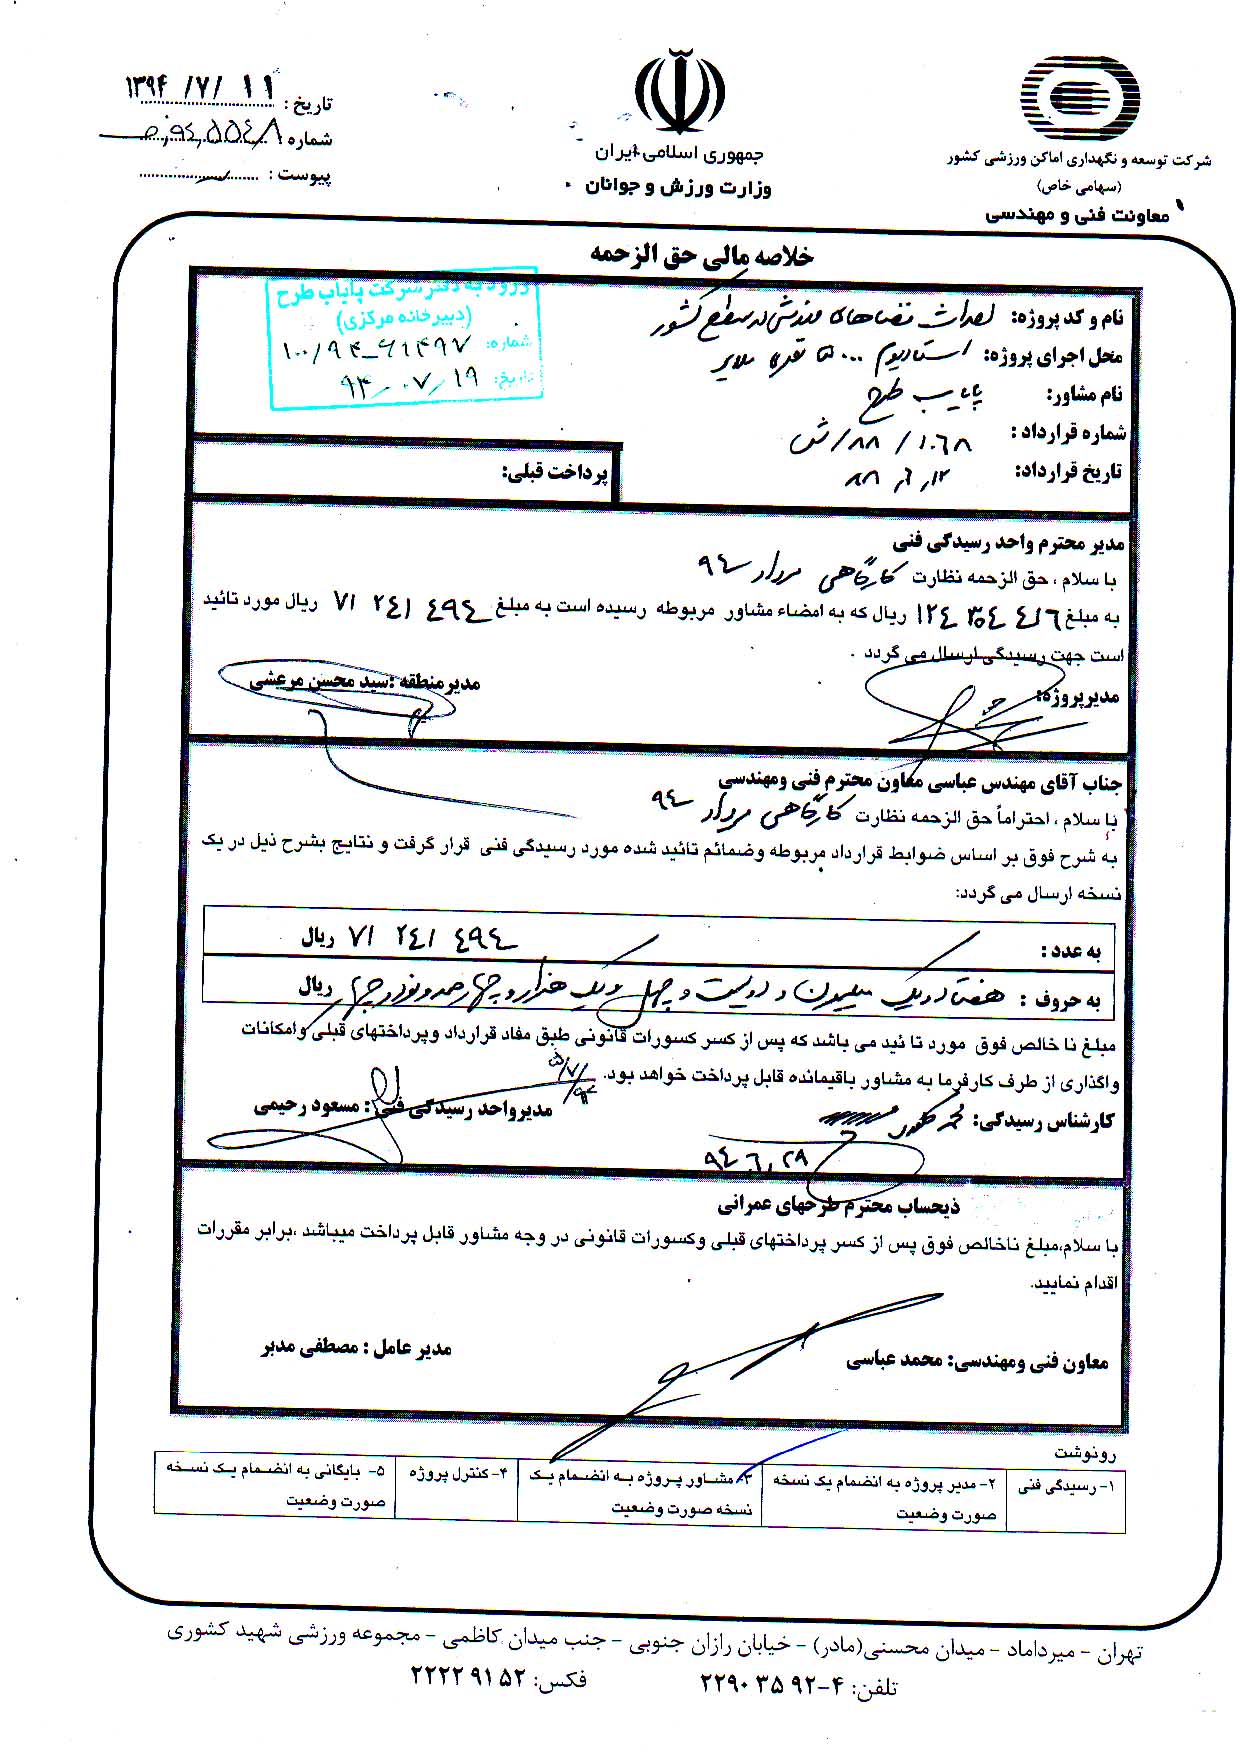 تاریخ: ۱۳۹۴/۷/۱۱
شماره
پیوست:
جمهوری اسلامی ایران
وزارت ورزش و جوانان
شرکت توسعه و نگهداری اماکن ورزشی کشور
(سهامی خاص)
معاونت فنی و مهندسی
خلاصه مالی حق الزحمه
ورود به دفتر شرکت پایاب طرح
(دبیرخانه مرکزی)
شماره: ۱۰۰/۹۴-۶۱۴۹۷
تاریخ: ۹۴,۰۷,۱۹
نام و کد پروژه: احداث فضاهای ورزشی در سطح کشور
محل اجرای پروژه: استادیوم ۵۰۰۰ نفره ملایر
نام مشاور: پایاب طرح
شماره قرارداد: ۱۰۶۸/۸۸/ش
تاریخ قرارداد: ۸۸,۶,۱۲
پرداخت قبلی:
مدیر محترم واحد رسیدگی فنی
با سلام ، حق الزحمه نظارت کارگاهی مرداد ۹۴
به مبلغ ۱۲۴ ۳۰۴ ۴۱۶ ریال که به امضاء مشاور مربوطه رسیده است به مبلغ ۷۱ ۲۴۱ ۴۹۴ ریال مورد تائید
است جهت رسیدگی ارسال می گردد .
مدیرپروژه: مدیرمنطقه :سید محسن مرعشی
جناب آقای مهندس عباسی معاون محترم فنی ومهندسی
با سلام ، احتراماً حق الزحمه نظارت کارگاهی مرداد ۹۴
به شرح فوق بر اساس ضوابط قرارداد مربوطه وضمائم تائید شده مورد رسیدگی فنی قرار گرفت و نتایج بشرح ذیل در یک
نسخه ارسال می گردد:
به عدد : ۷۱ ۲۴۱ ۴۹۴ ریال
به حروف : هفتاد و یک میلیون و دویست و چهل و یک هزار و چهارصد و نود و چهار ریال
مبلغ نا خالص فوق مورد تا ئید می باشد که پس از کسر کسورات قانونی طبق مفاد قرارداد وپرداختهای قبلی وامکانات
واگذاری از طرف کارفرما به مشاور باقیمانده قابل پرداخت خواهد بود.
کارشناس رسیدگی: مدیرواحد رسیدگی فنی : مسعود رحیمی
۹۴,۶,۲۹
ذیحساب محترم طرحهای عمرانی
با سلام،مبلغ ناخالص فوق پس از کسر پرداختهای قبلی وکسورات قانونی در وجه مشاور قابل پرداخت میباشد ،برابر مقررات
اقدام نمایید.
معاون فنی ومهندسی: محمد عباسی مدیر عامل : مصطفی مدبر
رونوشت
۱- رسیدگی فنی
۲- مدیر پروژه به انضمام یک نسخه
صورت وضعیت
۳- مشاور پروژه به انضمام یک
نسخه صورت وضعیت
۴- کنترل پروژه
۵- بایگانی به انضمام یک نسخه
صورت وضعیت
تهران - میرداماد - میدان محسنی(مادر) - خیابان رازان جنوبی - جنب میدان کاظمی - مجموعه ورزشی شهید کشوری
تلفن: ۴-۲۲۹۰۳۵۹۲ فکس: ۲۲۲۲۹۱۵۲